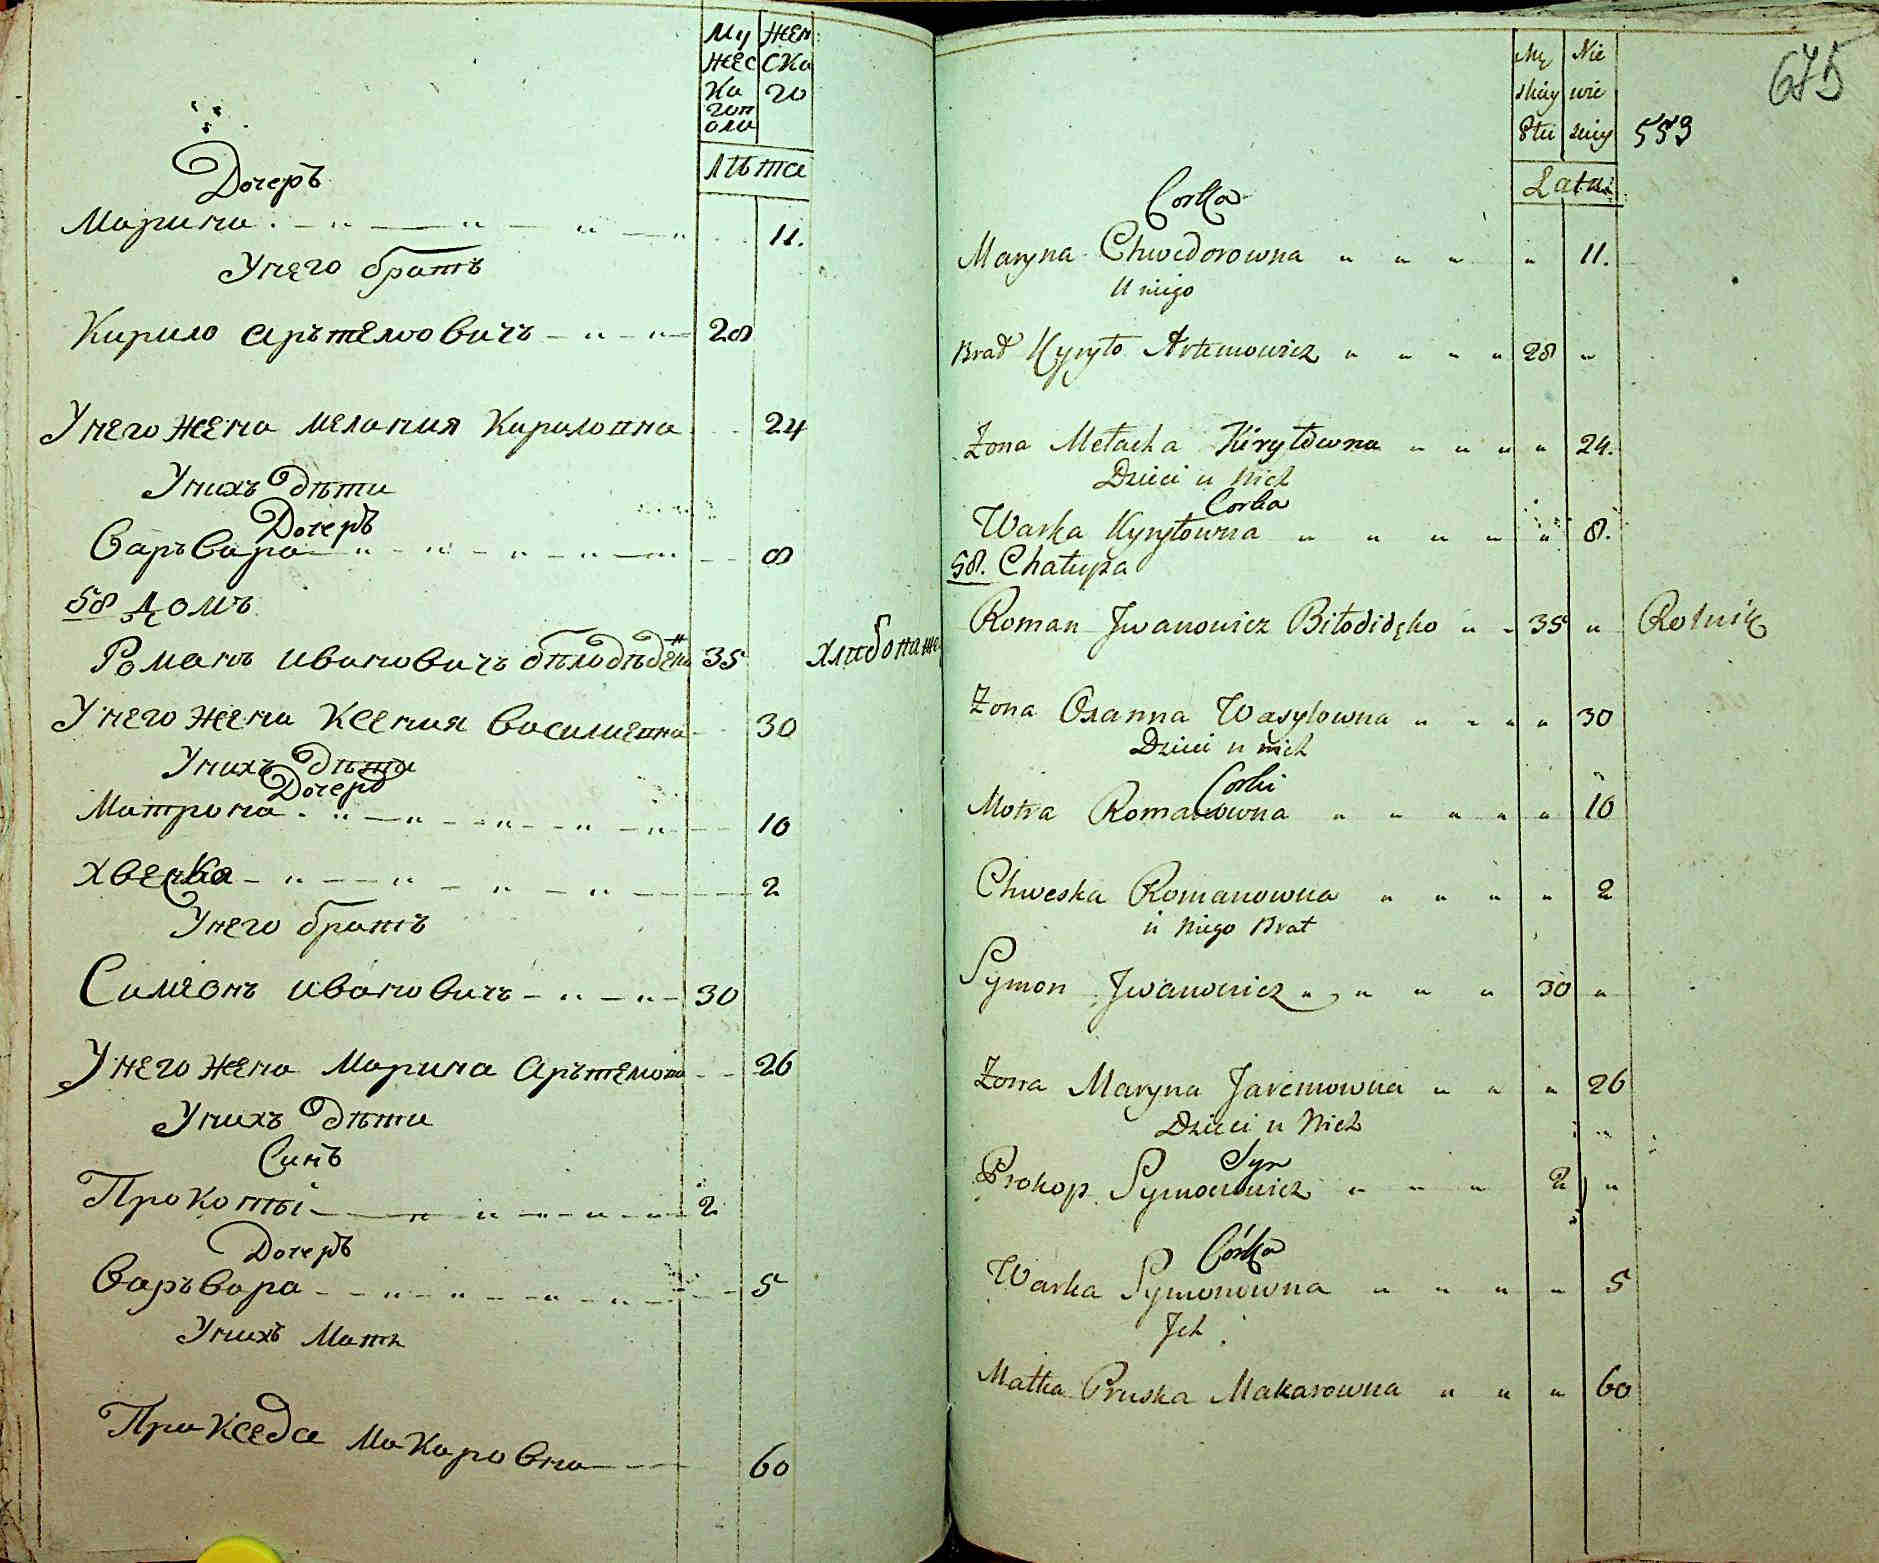 Му Жен
жес ска
ка го
гоп
ола
Лѣта
Дочеръ
Марина 11.
Унего братъ
Кирило Арътемовичъ 28
Унего жена Мелания Кириловна 24
Унихъ дѣти
Дочеръ
Варъвара 8
58 Домъ
Романъ Ивановичъ Бѣлодѣденко 35
Унего жена Ксения Василиевна 30
Унихъ дѣти
Дочеръ
Матрона 10
Хвеска 2
Унего братъ
Симеонъ Ивановичъ 30
Унего жена Марина Арътемовна 26
Унихъ дѣти
Синъ
Прокопѣй 2
Дочеръ
Варъвара 5
Унихъ Мать
Праκседа Макаровна 60
675
Mę Nie
skiey wie
Płci sciey 553
Lata
Corka
Maryna Chwedorowna 11.
U niego
Brat Kyryło Artemowicz 28
Zona Mełacha Kiryłowna 24.
Dzieci u Nich
Corka
Warka Kyryłowna 8.
58. Chałupa
Roman Jwanowicz Biłodidęko 35 Rolnik
Zona Oxanna Wasylowna 30
Dzieci u nich
Corki
Motra Romanowna 10
Chweska Romanowna 2
u Niego Brat
Symon Jwanowicz 30
Zona Maryna Jaremowna 26
Dzieci u Nich
Syn
Prokop Symonowicz 2
Córka
Warka Symonowna 5
Jch
Matka Pruska Makarowna 60